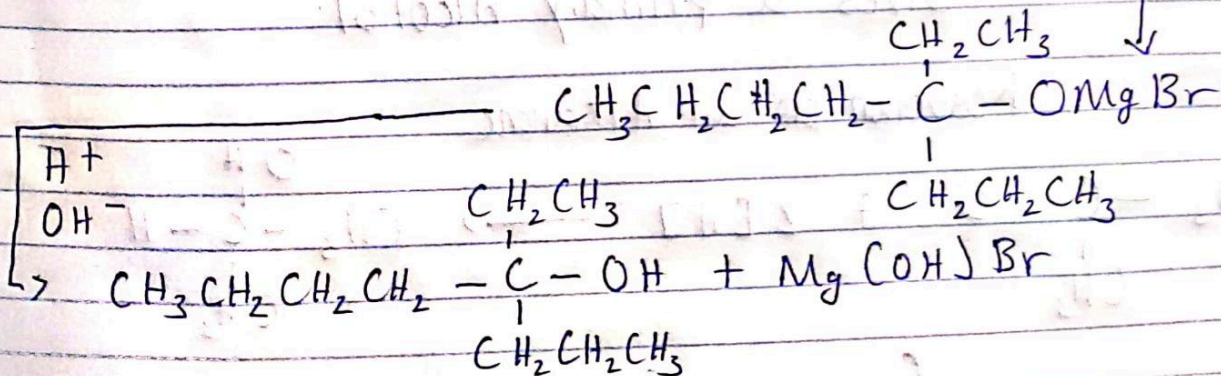 CH₂CH₃ ↓
CH₃CH₂CH₂CH₂ - C - OMgBr
CH₂CH₂CH₃
H+
OH-
CH₂CH₃
CH₃CH₂CH₂CH₂ - C - OH + Mg(OH)Br
CH₂CH₂CH₃